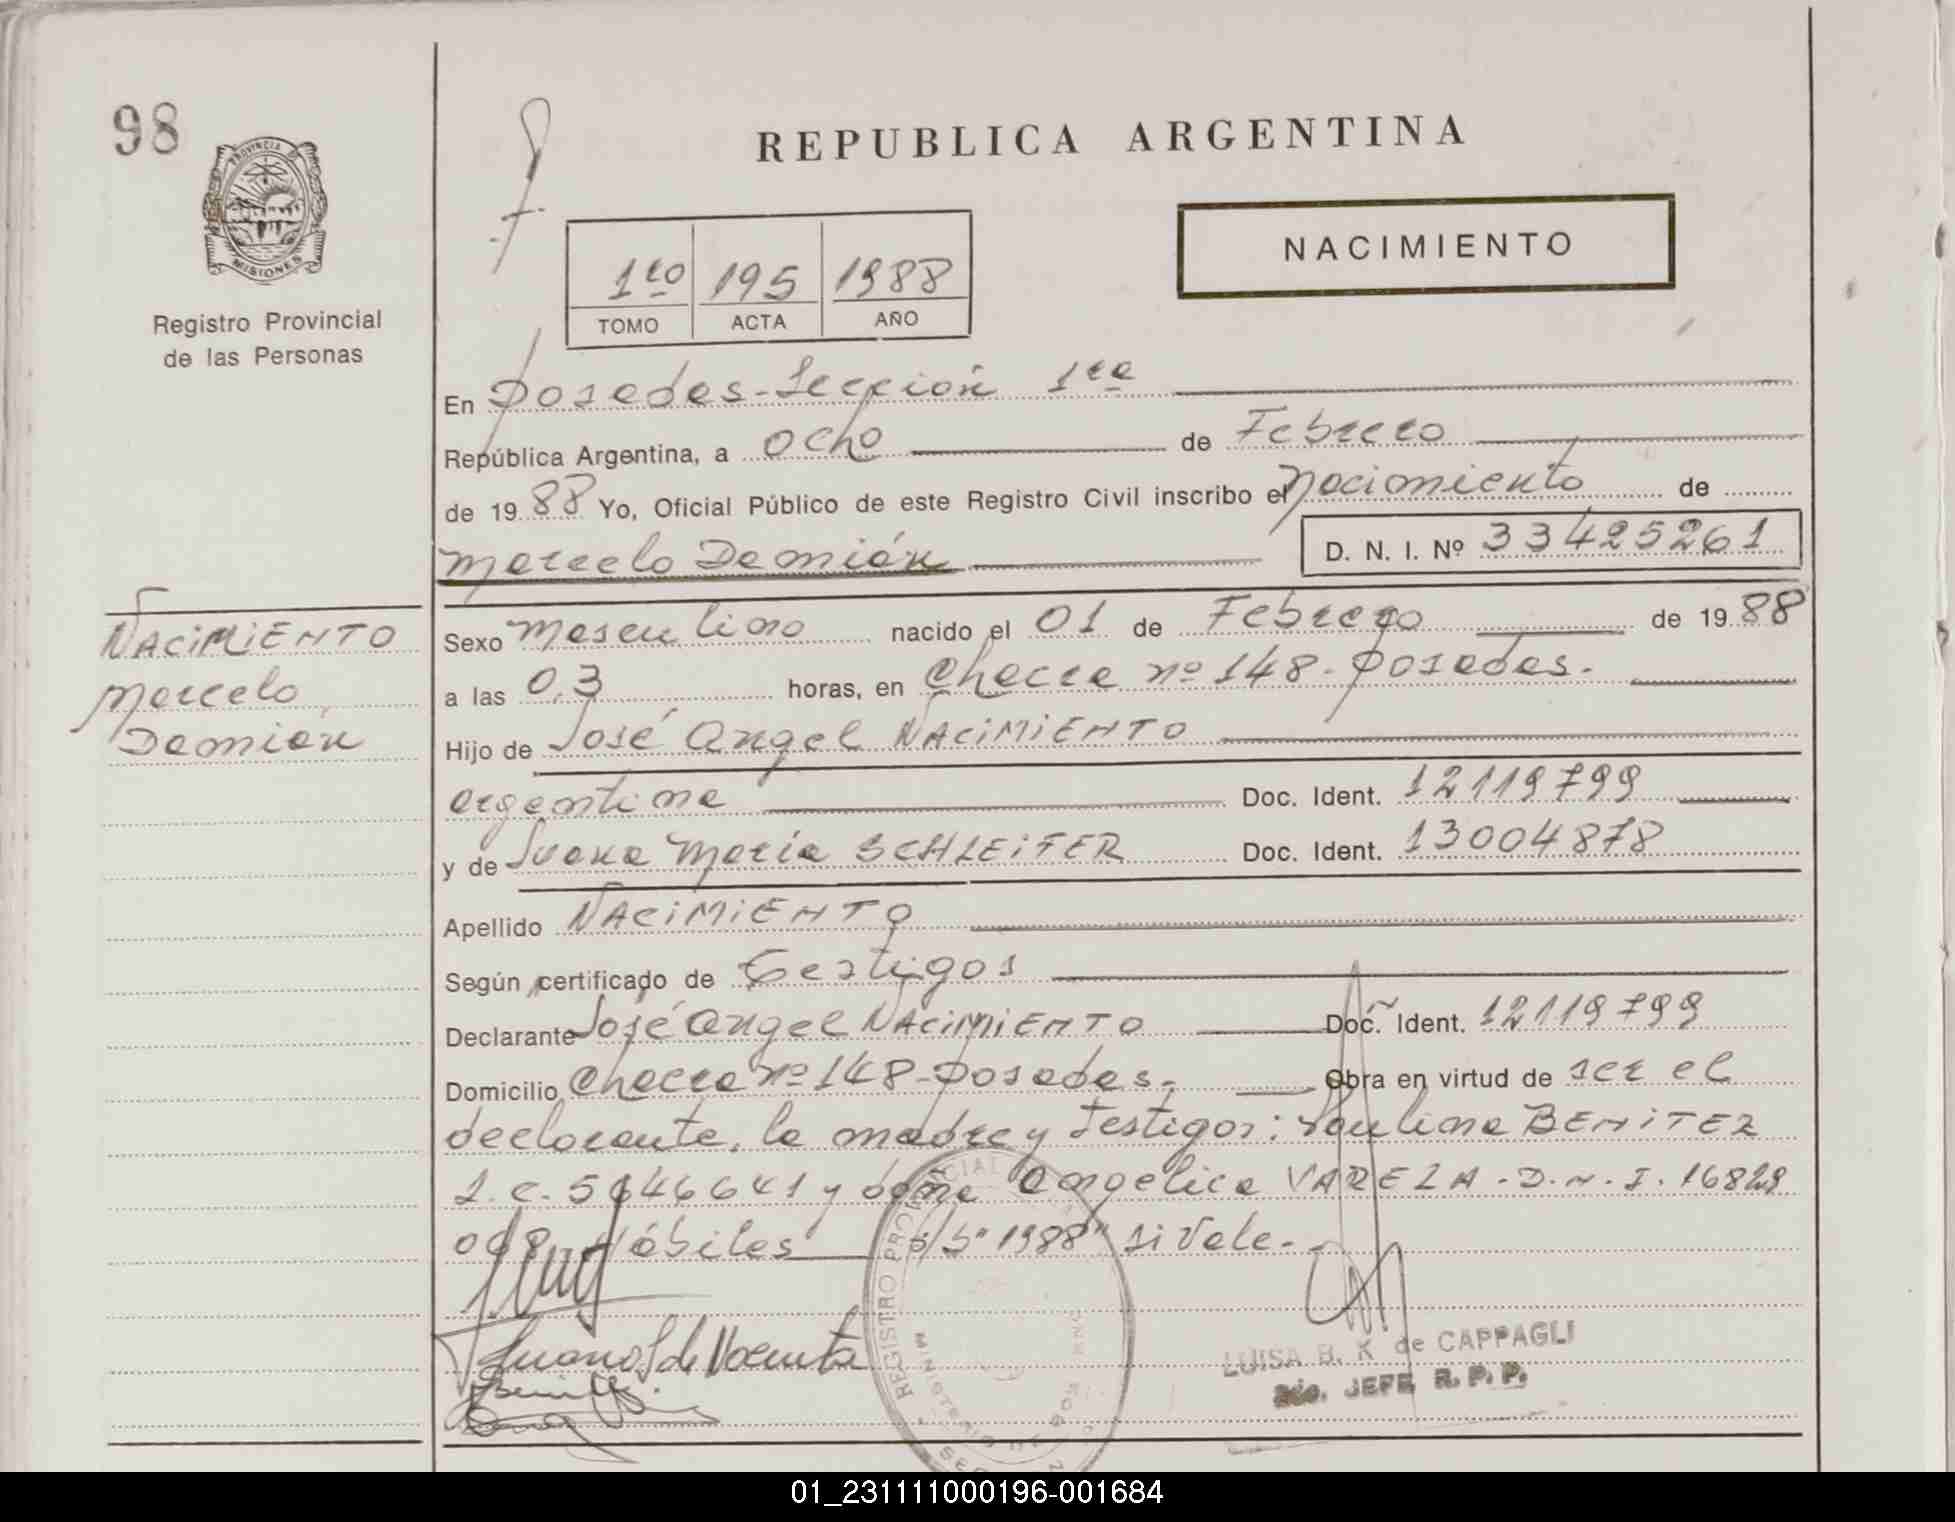 98
PROVINCIA DE
MISIONES
Registro Provincial
de las Personas
REPUBLICA ARGENTINA
NACIMIENTO
1ro 195 1988
TOMO ACTA AÑO
En Posadas-Sección 1ra
República Argentina, a ocho de Febrero
de 1988 Yo, Oficial Público de este Registro Civil inscribo el Nacimiento de
Marcelo Damián D. N. I. Nº 33425261
NACIMIENTO
Marcelo
Damián
Sexo Masculino nacido el 01 de Febrero de 1988
a las 03 horas, en Chacra nº 148-Posadas.
Hijo de José Angel NACIMIENTO
argentina Doc. Ident. 12119799
y de Juana María SCHLEIFER Doc. Ident. 13004878
Apellido NACIMIENTO
Según certificado de Testigos
Declarante José Angel NACIMIENTO Doc. Ident. 12119799
Domicilio Chacra nº 148-Posadas. Obra en virtud de ser el
declarante, la madre y testigos: Paulina BENITEZ
L.C. 5646641 y doña Angelica VARELA.D.N.I. 16829
008 Hábiles s/b "1988" si Vale.
LUISA B. K de CAPPAGLI
2do. JEFE R. P. P.
REGISTRO PROVINCIAL
01_231111000196-001684